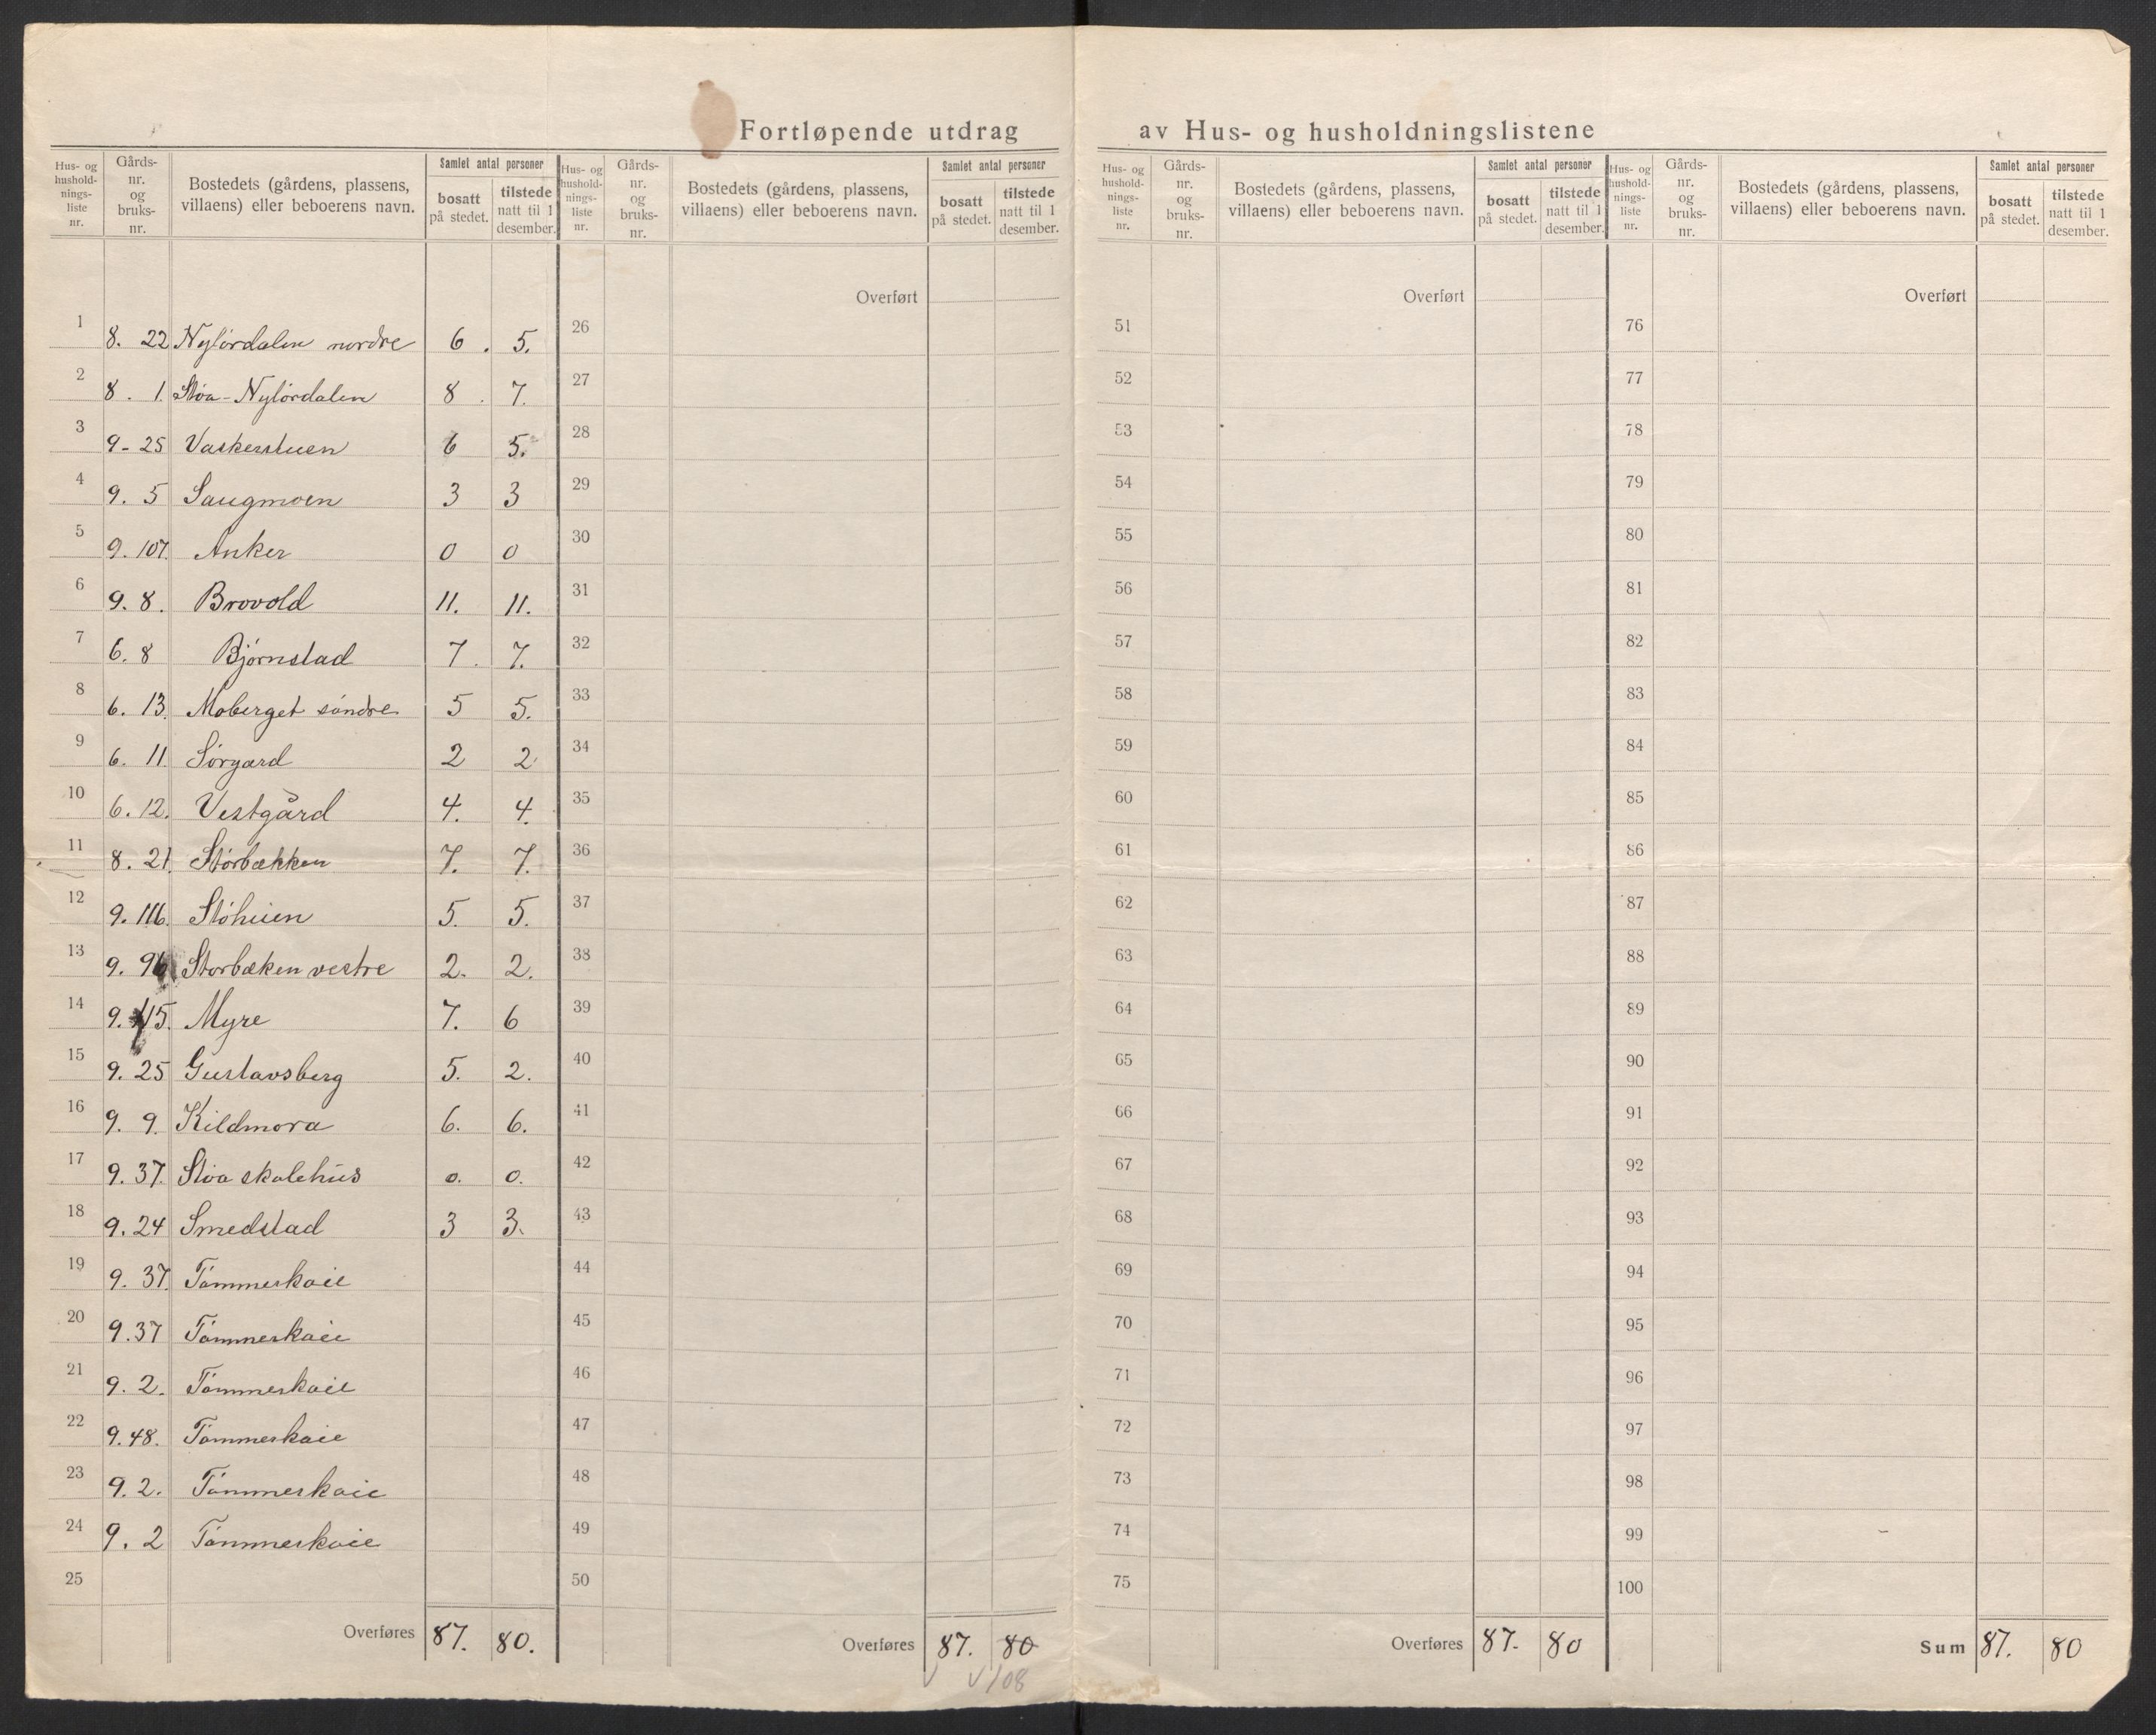 Fortløpende utdrag av Hus- og husholdningslistene
Hus- og husholdningsliste nr.
Gårds-nr. og bruks-nr.
Bostedets (gårdens, plassens, villaens) eller beboerens navn.
Samlet antal personer
bosatt på stedet.
tilstede natt til 1 desember.
Hus- og husholdningsliste nr.
Gårds-nr. og bruks-nr.
Bostedets (gårdens, plassens, villaens) eller beboerens navn.
Samlet antal personer
bosatt på stedet.
tilstede natt til 1 desember.
Hus- og husholdningsliste nr.
Gårds-nr. og bruks-nr.
Bostedets (gårdens, plassens, villaens) eller beboerens navn.
Samlet antal personer
bosatt på stedet.
tilstede natt til 1 desember.
Hus- og husholdningsliste nr.
Gårds-nr. og bruks-nr.
Bostedets (gårdens, plassens, villaens) eller beboerens navn.
Samlet antal personer
bosatt på stedet.
tilstede natt til 1 desember.
Overført Overført Overført
1 8. 22 Nylördalen nordre 6. 5. 26 51 76
2 8. 1. Støa-Nylördalen 8. 7. 27 52 77
3 9-25 Vaskerstuen 6 5. 28 53 78
4 9. 5 Saugmoen 3 3 29 54 79
5 9. 107. Anker 0 0 30 55 80
6 9. 8. Brovold 11. 11. 31 56 81
7 6. 8 Bjørnstad 7. 7. 32 57 82
8 6. 13. Moberget söndre 5 5. 33 58 83
9 6. 11. Sørgard 2 2 34 59 84
10 6. 12. Vestgård 4. 4. 35 60 85
11 8. 21. Störbækken 7. 7. 36 61 86
12 9. 116. Stöheien 5. 5. 37 62 87
13 9. 96 Storbæken vestre 2. 2. 38 63 88
14 9. 45. Myre 7. 6 39 64 89
15 9. 25 Gustavsberg 5. 2. 40 65 90
16 9. 9. Kildmora 6. 6. 41 66 91
17 9. 37. Støa skolehus 0. 0. 42 67 92
18 9. 24 Smedstad 3 3. 43 68 93
19 9. 37. Tömmerkoie 44 69 94
20 9. 37 Tömmerkoie 45 70 95
21 9. 2. Tömmerkoie 46 71 96
22 9. 48. Tömmerkoie 47 72 97
23 9. 2. Tömmerkoie 48 73 98
24 9. 2 Tömmerkoie 49 74 99
25 50 75 100
Overføres 87. 80. Overføres 87. 80 Overføres 87. 80 Sum 87. 80
108